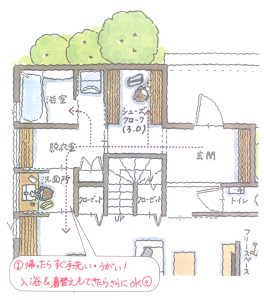 浴室
シューズ
クローク
(3.0)
脱衣室
玄関
洗面所
クローゼット
UP
クローゼット
トイレ
フリースペース
①帰ったらすぐ手洗い・うがい!
入浴&着替えもできたらさらにok◎